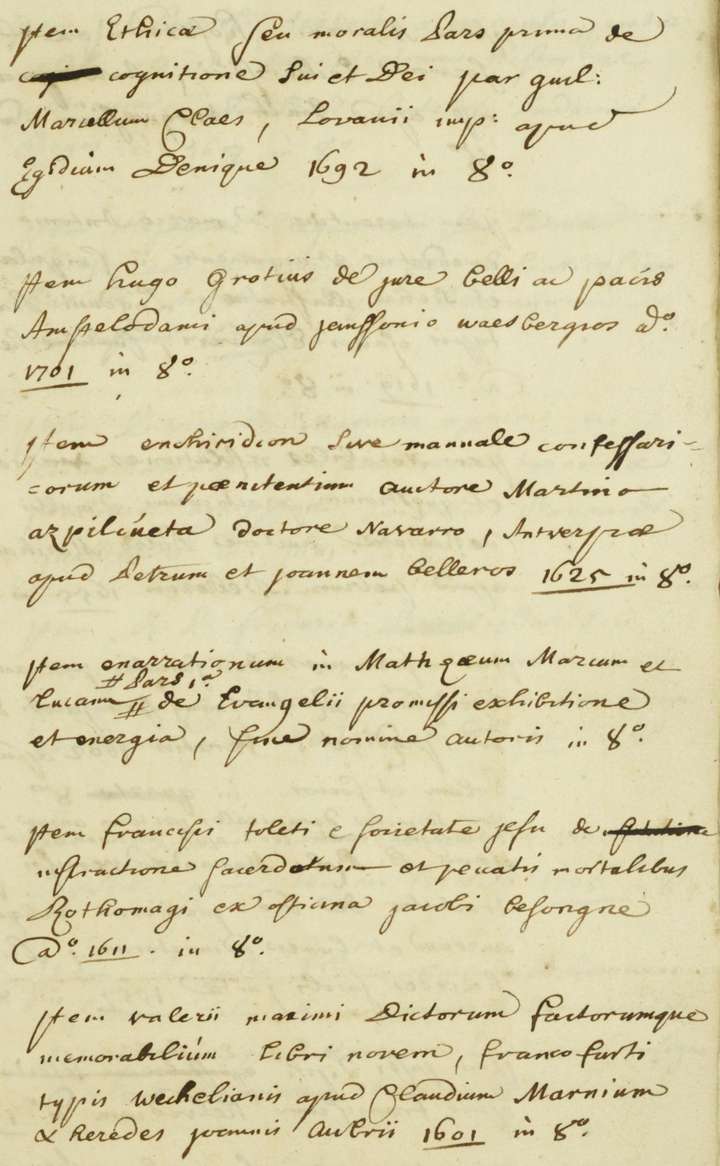 Item Ethicæ seu moralis Pars prima de
cognitione sui et Dei par guil:
Marcellum Claes, Lovanii imp: apud
Egidium Denique 1692 in 8º.
Item hugo Grotius de jure belli ac pacis
Amstelodami apud janssonio waesbergios aº.
1701 in 8º.
Item enchiridion sive manuale confessari-
=orum et pænitentium auctore Martino
azpilcúeta doctore Navarro, Antverpiæ
apud Petrum et joannem belleros 1625 in 8º.
Item enarrationum in Mathæum Marcum et
# Pars 1.a
Lucam # de Evangelii promissi exhibitione
et energia, sine nomine autoris in 8º.
Item francisci toleti e societate jesu de
instructione sacerdotum et peccatis mortalibus
Rothomagi ex officina jacobi besongne
aº. 1611. in 8º.
Item valerii maximi Dictorum factorumque
memorabiliúm libri novem, francofurti
typis wechelianis apud Claudium Marnium
& heredes joannis aubrii 1601 in 8º.